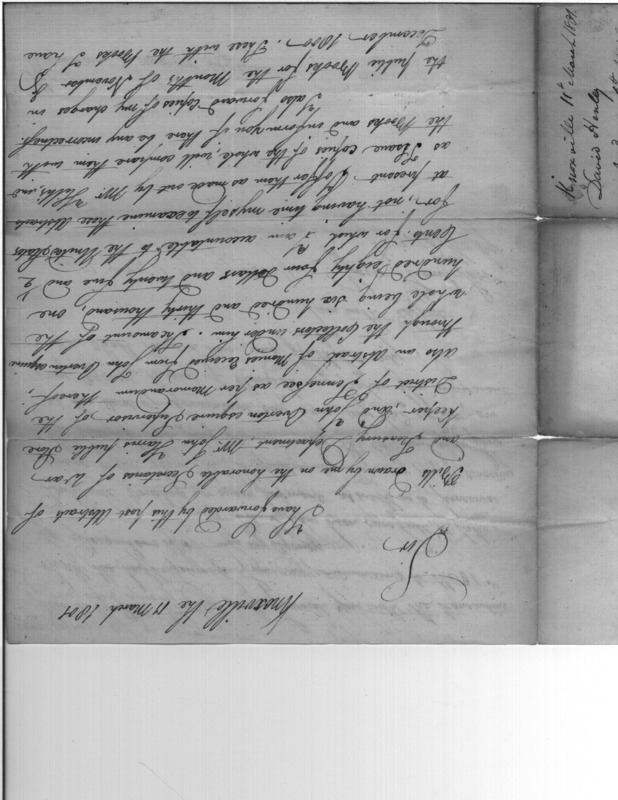 Knoxville the 11 March 1801
Sir
I have forwarded by this post Abstracts of
Bills drawn by me on the honorable Secretaries of War
and Treasury Department Mr. John Harris public Store
keeper, and John Overton esquire Supervisor of the
District of Tennessee, as per Memorandum thereof,
also an Abstract of Monies Received from John Overton esquire
through the Collectors under him. The amount of the
whole being six hundred and thirty thousand, one
hundred & eighty four Dollars and twenty five and ½
Cents. for which I am accountable to the United States
for, not having time myself to examine these Abstracts
at present I offer them as made out by Mr. and
as I have copies of the whole, will compare them with
the Books and inform you if there be any incorrectness.
I also forward Copies of my charges in
the public Books for the Months of November &
December 1800. These with the Books I have
Knoxville 11th March 1801.
David Henley